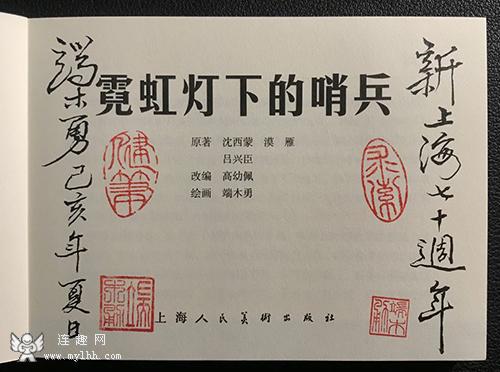 新上海七十週年
霓虹灯下的哨兵
原著 沈西蒙 漠雁
吕兴臣
改编 高幼佩
绘画 端木勇
上海人民美術出版社
端木勇己亥年夏日
连趣网
www.mylhh.com